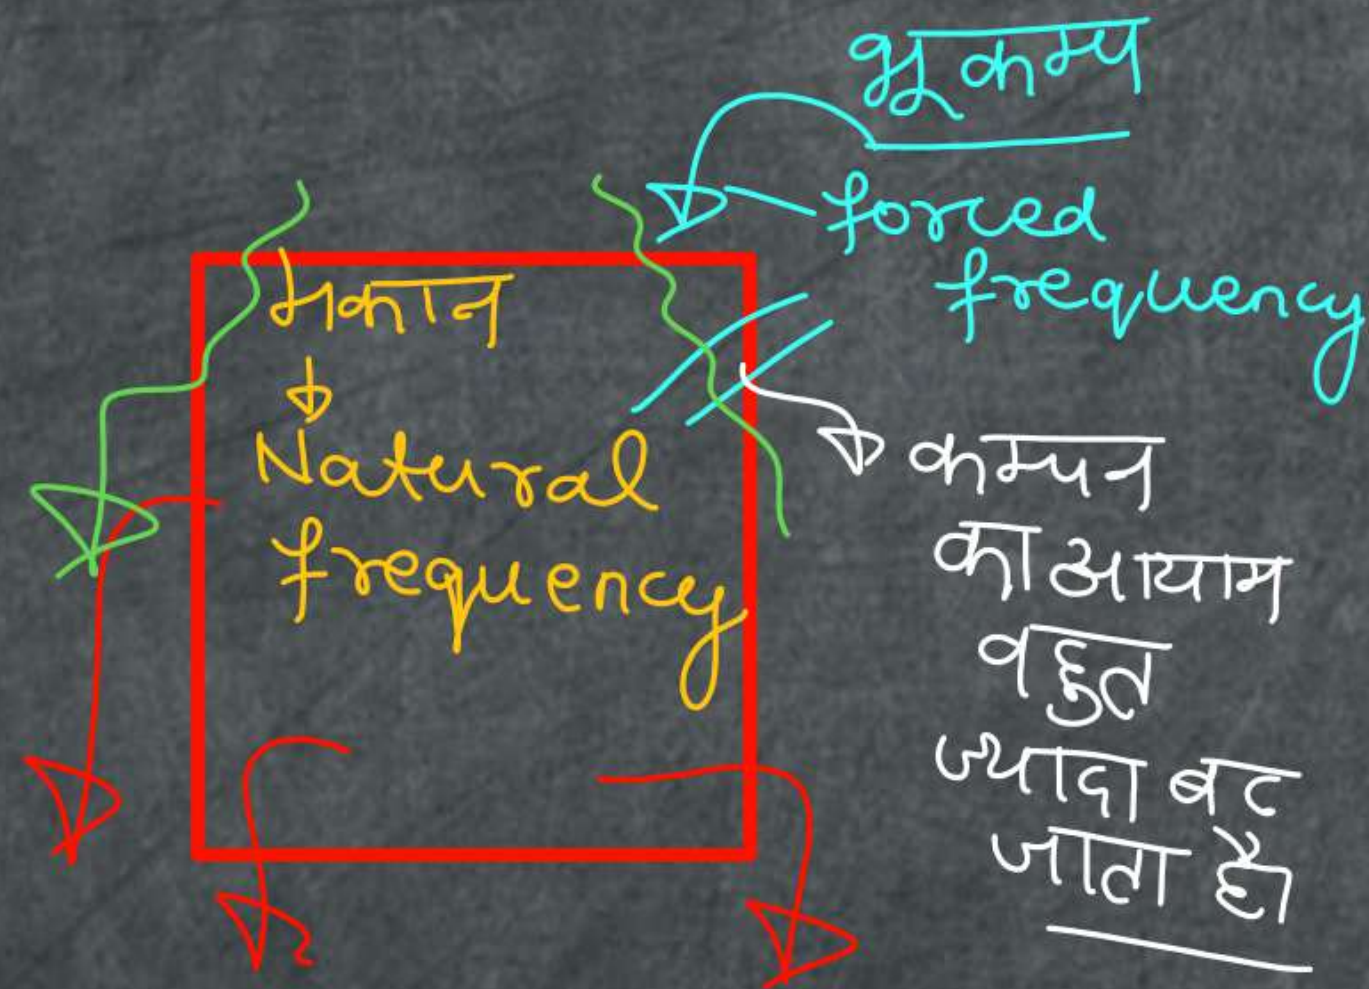 भूकम्प
forced
frequency
मकान
Natural
frequency
कम्पन
का आयाम
वहुत
ज्यादा बट
जाता है।